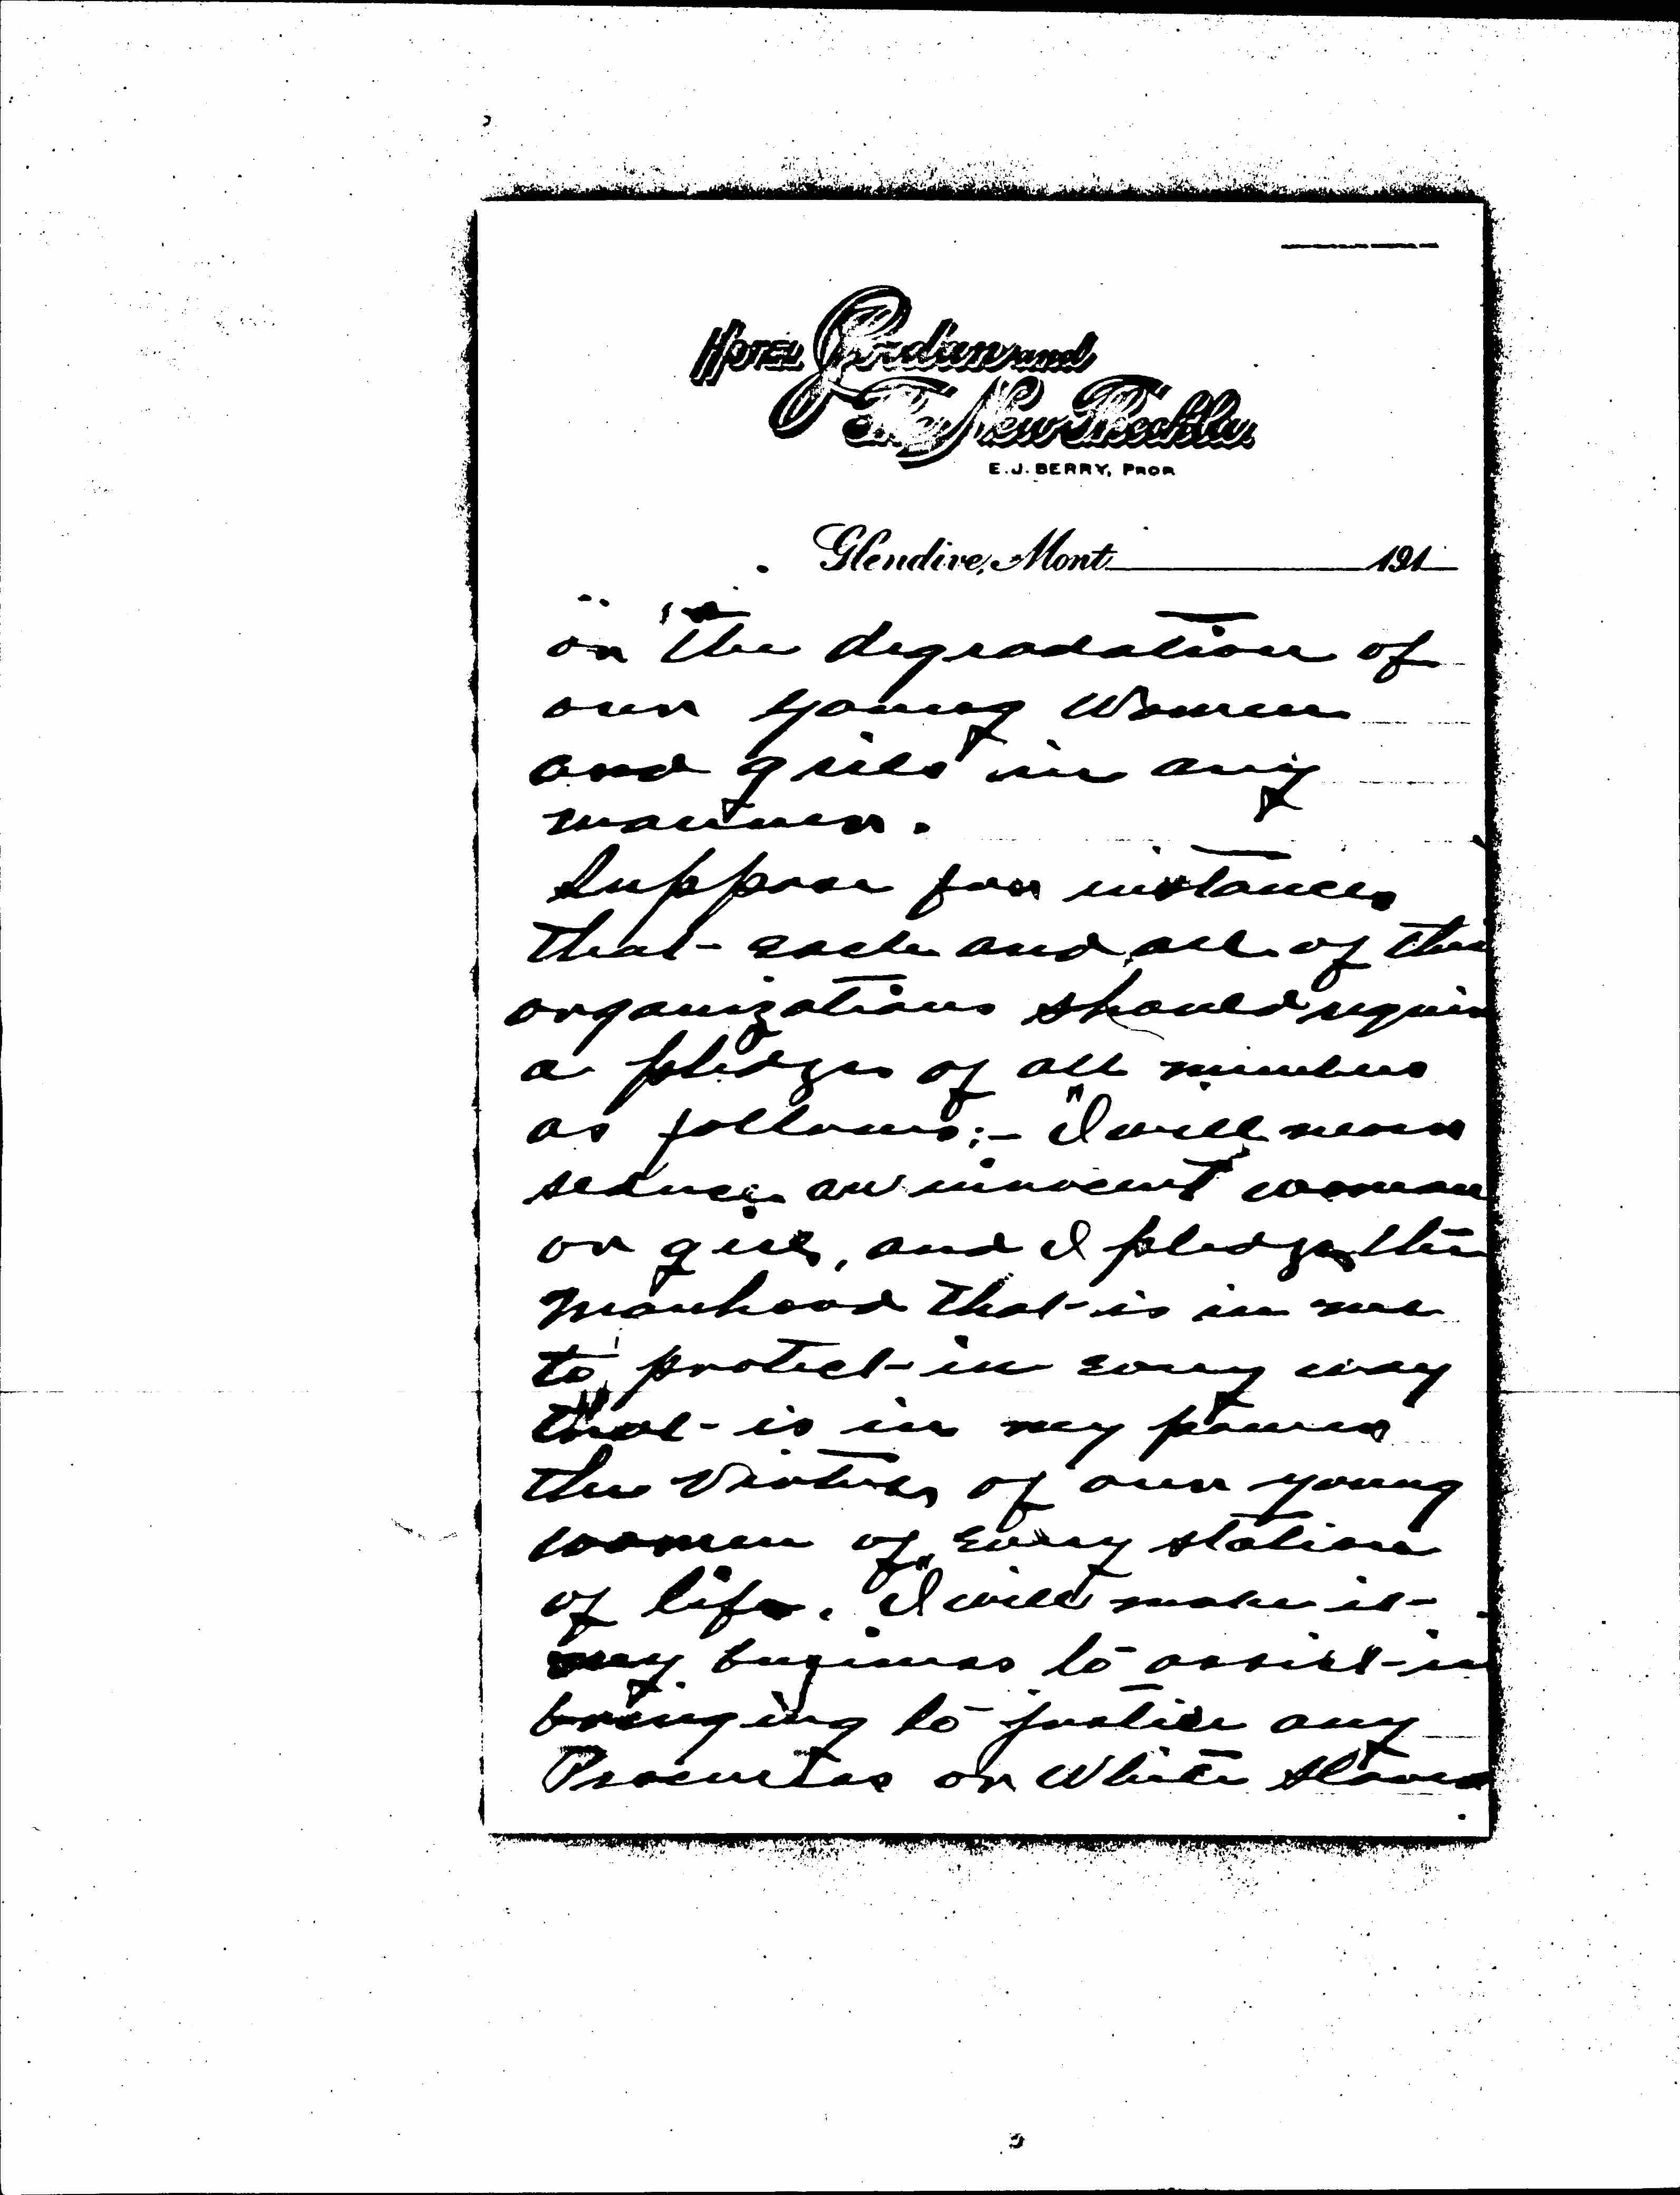 Hotel Jordan and
The New
E. J. BERRY, PROP
Glendive, Mont. 191
on the degradation of
our young Women
and girls in any
manner.
Suppose for instance,
that each and all of the
organizations should require
a pledge of all members
as follows;- "I will never
seduce an innocent woman
or girl, and I pledge the
manhood that is in me
to protect in every way
that is in my power
the Virtue of our young
women of every station
of life. "I will make it
my business to assist in
bringing to justice any
or White Slaver